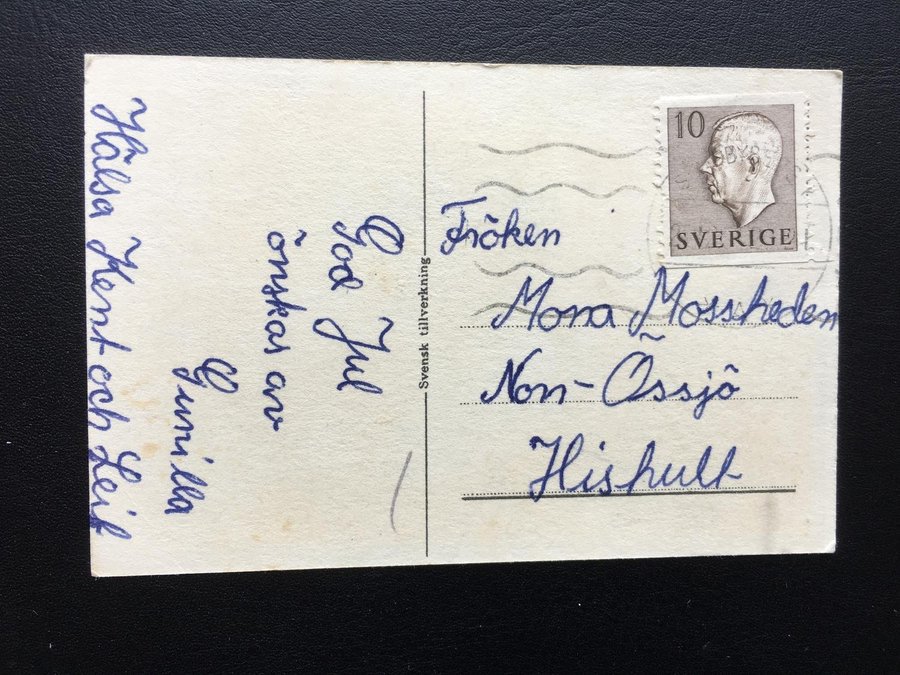 God Jul
önskas av
Gunilla
Hälsa Kent och Leif
Svensk tillverkning
10
SVERIGE
Fröken
Mona Mossheden
Norr-Össjö
Hishult